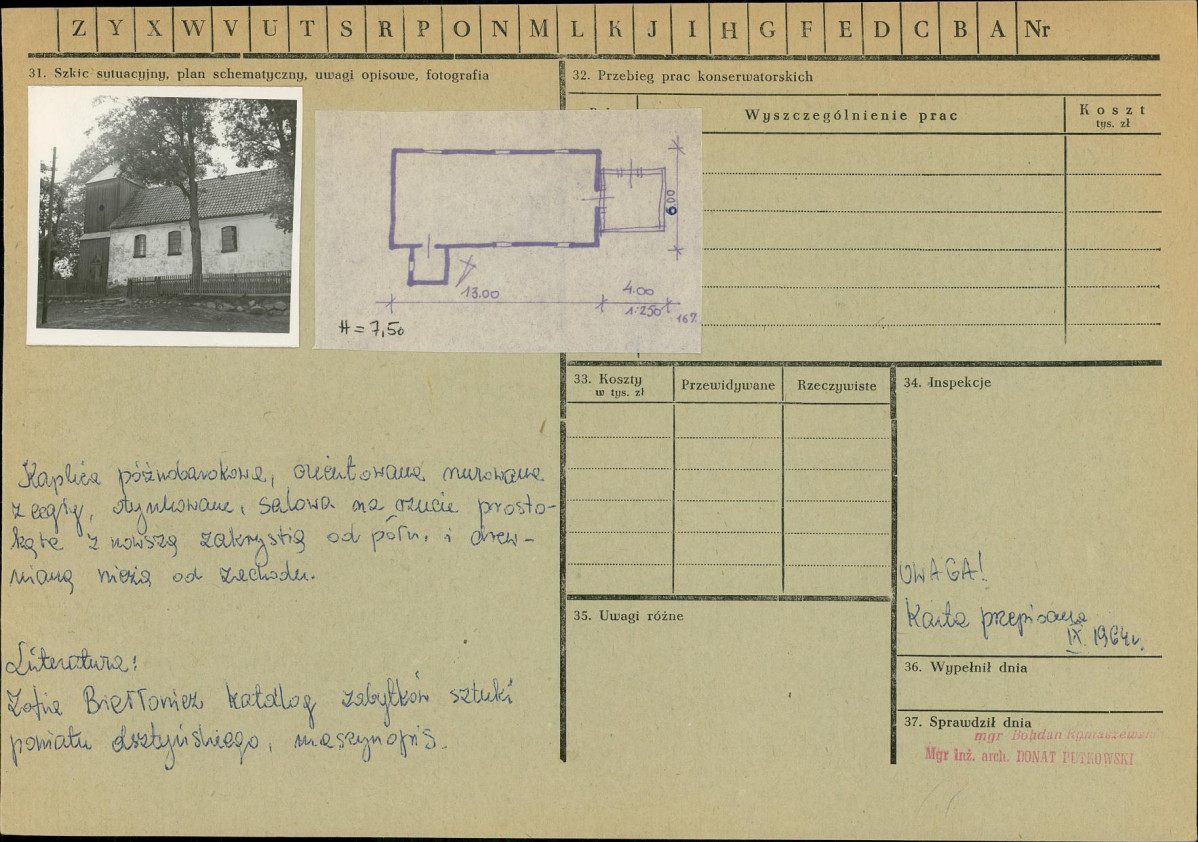 Z Y X W V U T S R P O N M L K J I H G F E D C B A Nr
31. Szkic sytuacyjny, plan schematyczny, uwagi opisowe, fotografia
6.00
13.00
4.00
1:250
167
H = 7,50
Kaplica późnobarokowa, orientowana murowana
z cegły, otynkowana, salowa na rzucie prosto-
kąta z nowszą zakrystią od półn. i drew-
nianą wieżą od zachodu.
Literatura:
Zofia Białłowicz katalog zabytków sztuki
powiatu olsztyńskiego, maszynopis.
32. Przebieg prac konserwatorskich
Wyszczególnienie prac
Koszt
tys. zł
33. Koszty
w tys. zł
Przewidywane
Rzeczywiste
34. Inspekcje
UWAGA!
Karta przepisana
IX. 1964r.
35. Uwagi różne
36. Wypełnił dnia
37. Sprawdził dnia
mgr Bohdan Rymaszewski
Mgr inż. arch. DONAT PUTKOWSKI